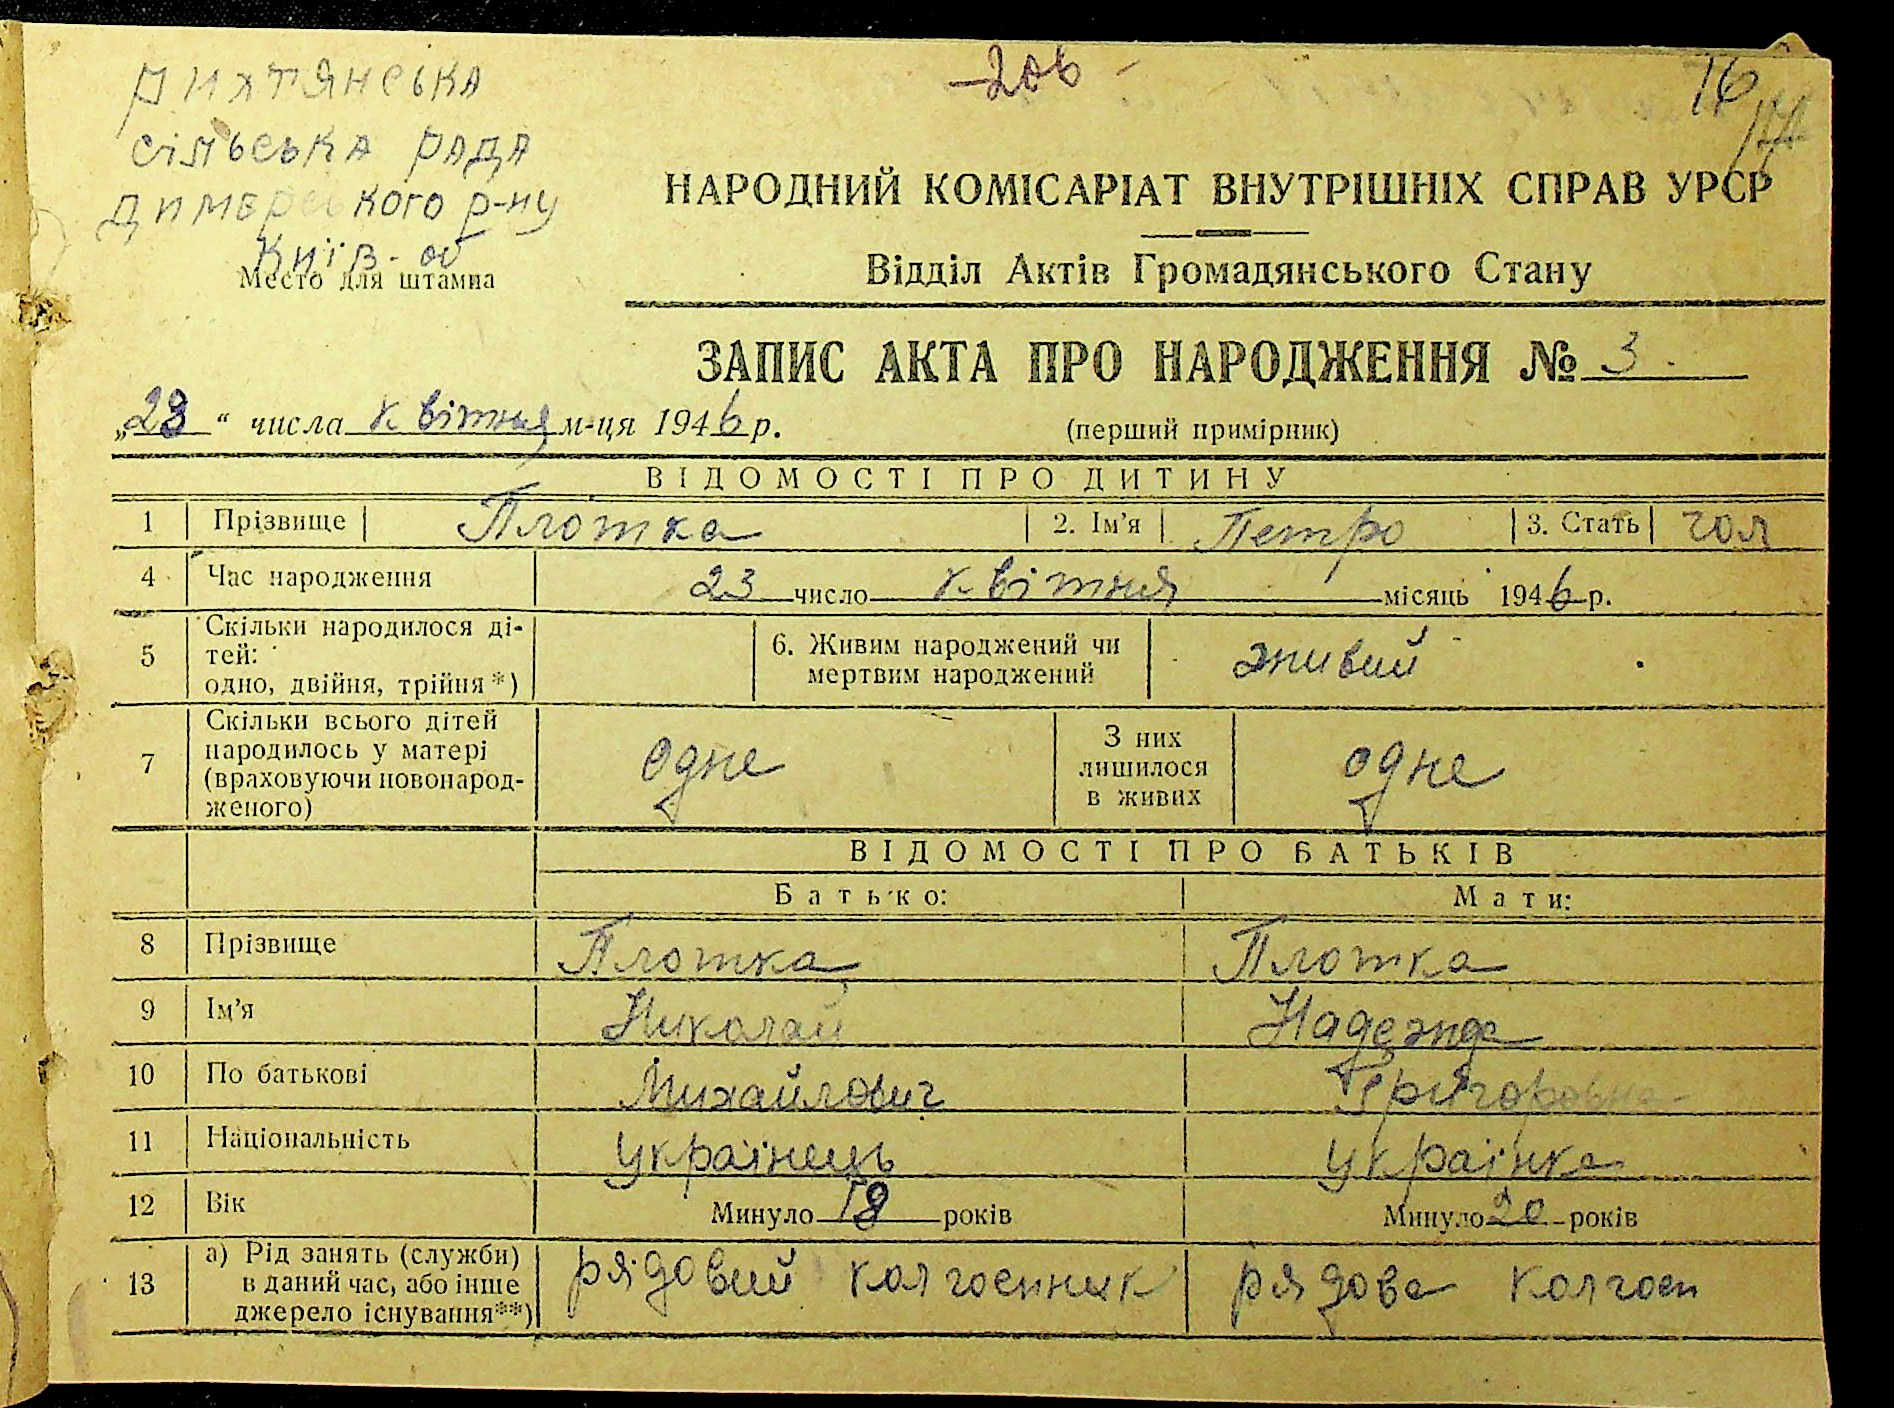 Рихтянська
сільська рада
Димерського р-ну
Київ. об
Место для штампа
-206-
16
НАРОДНИЙ КОМІСАРІАТ ВНУТРІШНІХ СПРАВ УРСР
Відділ Актів Громадянського Стану
ЗАПИС АКТА ПРО НАРОДЖЕННЯ № 3.
„23“ числа квітня м-ця 1946 р.
(перший примірник)
ВІДОМОСТІ ПРО ДИТИНУ
1 Прізвище Плотка 2. Ім’я Петро 3. Стать чол
4 Час народження 23 число квітня місяць 1946 р.
5 Скільки народилося ді-
тей:
одно, двійня, трійня*)
6. Живим народжений чи
мертвим народжений
живий
7 Скільки всього дітей
народилось у матері
(враховуючи новонарод-
женого)
одне
З них
лишилося
в живих
одне
ВІДОМОСТІ ПРО БАТЬКІВ
Батько: Мати:
8 Прізвище Плотка Плотка
9 Ім’я Николай Надежда
10 По батькові Михайлович Григоровна
11 Національність українець українка
12 Вік Минуло 18 років Минуло 20 років
13 а) Рід занять (служби)
в даний час, або інше
джерело існування**)
рядовий колгоспник рядова колгосп